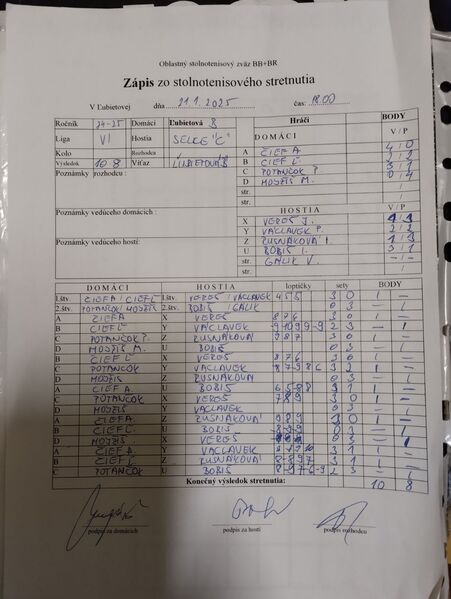 Oblastný stolnotenisový zväz BB+BR
Zápis zo stolnotenisového stretnutia
V Ľubietovej dňa 21.1.2025 čas: 18.00
Ročník 24-25 Domáci Ľubietová B Hráči BODY
Liga VI Hostia SELCE "C" DOMÁCI V/P
Kolo Rozhodca A CIEF A 4/0
Výsledok 10 8 Víťaz ĽUBIETOVÁ B B CIEF Ľ
Poznámky rozhodcu : C POTANČOK P. 3/1
D MOJŽIŠ M. 0/4
str. /
str. /
Poznámky vedúceho domácich : HOSTIA V/P
X VEREŠ J.
Y VACLAVEK P. 2/2
Poznámky vedúceho hostí: Z RUSNAKOVÁ 1/3
U BOBIŠ I. 3/1
str. GALIK V. -/-
DOMÁCI HOSTIA loptičky sety BODY
1.štv. CIEFA / CIEFĽ 1.štv. VEREŠ / VACLAVEK 3 0 1 -
2.štv. POTANČOK MOJŽIŠ 2.štv. BOBIŠ GALIK 0 3 - 1
A CIEFA X VEREŠ 8 7 6 3 0 1 -
B CIEF Ľ Y VACLAVEK 2 3 - 1
C POTANČOK P. Z RUSNAKOVÁ 9 8 7 3 0 1 -
D MOJŽIŠ M. U BOBIŠ 0 3 - 1
B CIEF Ľ X VEREŠ 8 7 6 3 0 1 -
C POTANČOK Y VACLAVEK 3 2 1 -
D MOJŽIŠ Z RUSNAKOVÁ 0 3 - 1
A CIEF A U BOBIŠ 3 1 1 -
C POTANČOK X VEREŠ 7 8 9 3 0 1 -
D MOJŽIŠ Y VACLAVEK 0 3 - 1
A CIEFA Z RUSNAKOVÁ 3 0 1 -
B CIEFĽ U BOBIŠ 0 3 - 1
D MOJŽIŠ X VEREŠ 0 3 - 1
A CIEFA Y VACLAVEK 3 1 1 -
B CIEFĽ Z RUSNAKOVÁ 3 1 1 -
C POTANČOK U BOBIŠ 2 3 - 1
Konečný výsledok stretnutia: 10 8
podpis za domácich podpis za hostí podpis rozhodcu